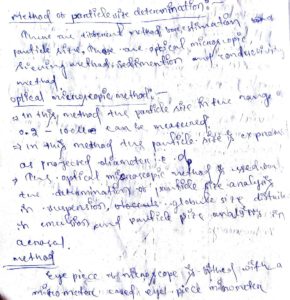 Method of particle size determination :-
There are different method for estimation
particle size. These are optical microscopic
sieving method, sedimention and conductivity
method
optical microscopic method :-
→ in this method the particle size in the range of
0.2 - 100 can be measured
→ in this method the particle size is express
as projected diameter i.e dp
The optical microscopic method is used
the determination of particle size analysis
in suspension, globule size
in emulsion and particle size analysis in
aerosol.
method
Eye piece of microscope is fitted with a
micrometer eye piece micrometer